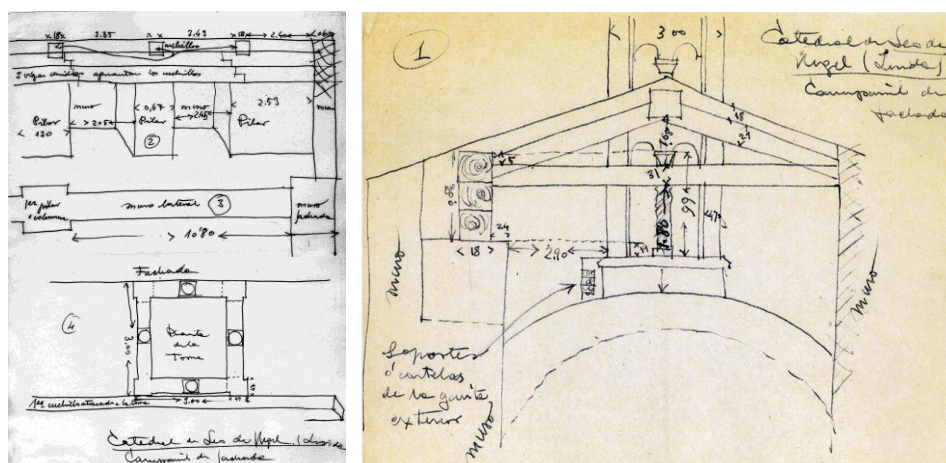 ×18×
3.35
3.43
×18×
2.40
cuchillos
2 vigas corridas aguantan los cuchillos
muro
0,67
muro
2.53
Pilar
120
2.05
Pilar
2.05
Pilar
muro
2
1er pilar
o columna
muro lateral
3
muro
fachada
10'80
Fachada
4
3.00
Planta
de la
Torre
3.00
1er cuchillo atrancado a la torre
Catedral de Seo de Urgel. (Lerida
Campanil de fachada
1
3.00
Catedral de Seo de
Urgel (Lerida)
Campanil de
fachada
15
24
15
31
0,90
99
1.80
47
24
18
2.90
muro
muro
Soportes
ó cartelas
de la garita
exterior
muro